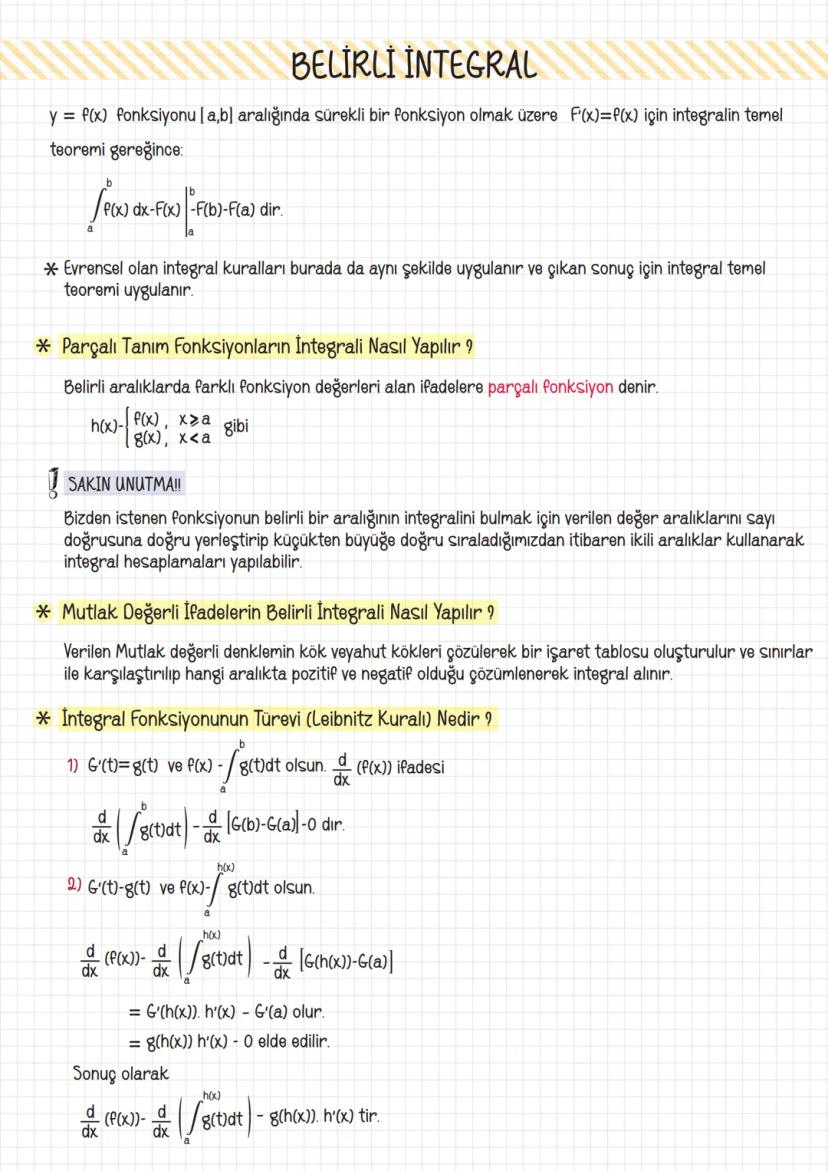 BELİRLİ İNTEGRAL
y = f(x) fonksiyonu [a,b] aralığında sürekli bir fonksiyon olmak üzere F'(x)=f(x) için integralin temel
teoremi gereğince:
∫_a^b f(x) dx-F(x) |_a^b -F(b)-F(a) dir.
* Evrensel olan integral kuralları burada da aynı şekilde uygulanır ve çıkan sonuç için integral temel
teoremi uygulanır.
* Parçalı Tanım Fonksiyonların İntegrali Nasıl Yapılır ?
Belirli aralıklarda farklı fonksiyon değerleri alan ifadelere parçalı fonksiyon denir.
h(x)-{ f(x), x⩾a
g(x), x<a gibi
! SAKIN UNUTMA!!
Bizden istenen fonksiyonun belirli bir aralığının integralini bulmak için verilen değer aralıklarını sayı
doğrusuna doğru yerleştirip küçükten büyüğe doğru sıraladığımızdan itibaren ikili aralıklar kullanarak
integral hesaplamaları yapılabilir.
* Mutlak Değerli İfadelerin Belirli İntegrali Nasıl Yapılır ?
Verilen Mutlak değerli denklemin kök veyahut kökleri çözülerek bir işaret tablosu oluşturulur ve sınırlar
ile karşılaştırılıp hangi aralıkta pozitif ve negatif olduğu çözümlenerek integral alınır.
* İntegral Fonksiyonunun Türevi (Leibnitz Kuralı) Nedir ?
1) G'(t)=g(t) ve f(x) - ∫_a^b g(t)dt olsun. d/dx (f(x)) ifadesi
d/dx (∫_a^b g(t)dt) - d/dx [G(b)-G(a)]-0 dır.
2) G'(t)-g(t) ve f(x)-∫_a^h(x) g(t)dt olsun.
d/dx (f(x))- d/dx (∫_a^h(x) g(t)dt) - d/dx [G(h(x))-G(a)]
= G'(h(x)). h'(x) - G'(a) olur.
= g(h(x)) h'(x) - 0 elde edilir.
Sonuç olarak
d/dx (f(x))- d/dx (∫_a^h(x) g(t)dt) - g(h(x)). h'(x) tir.